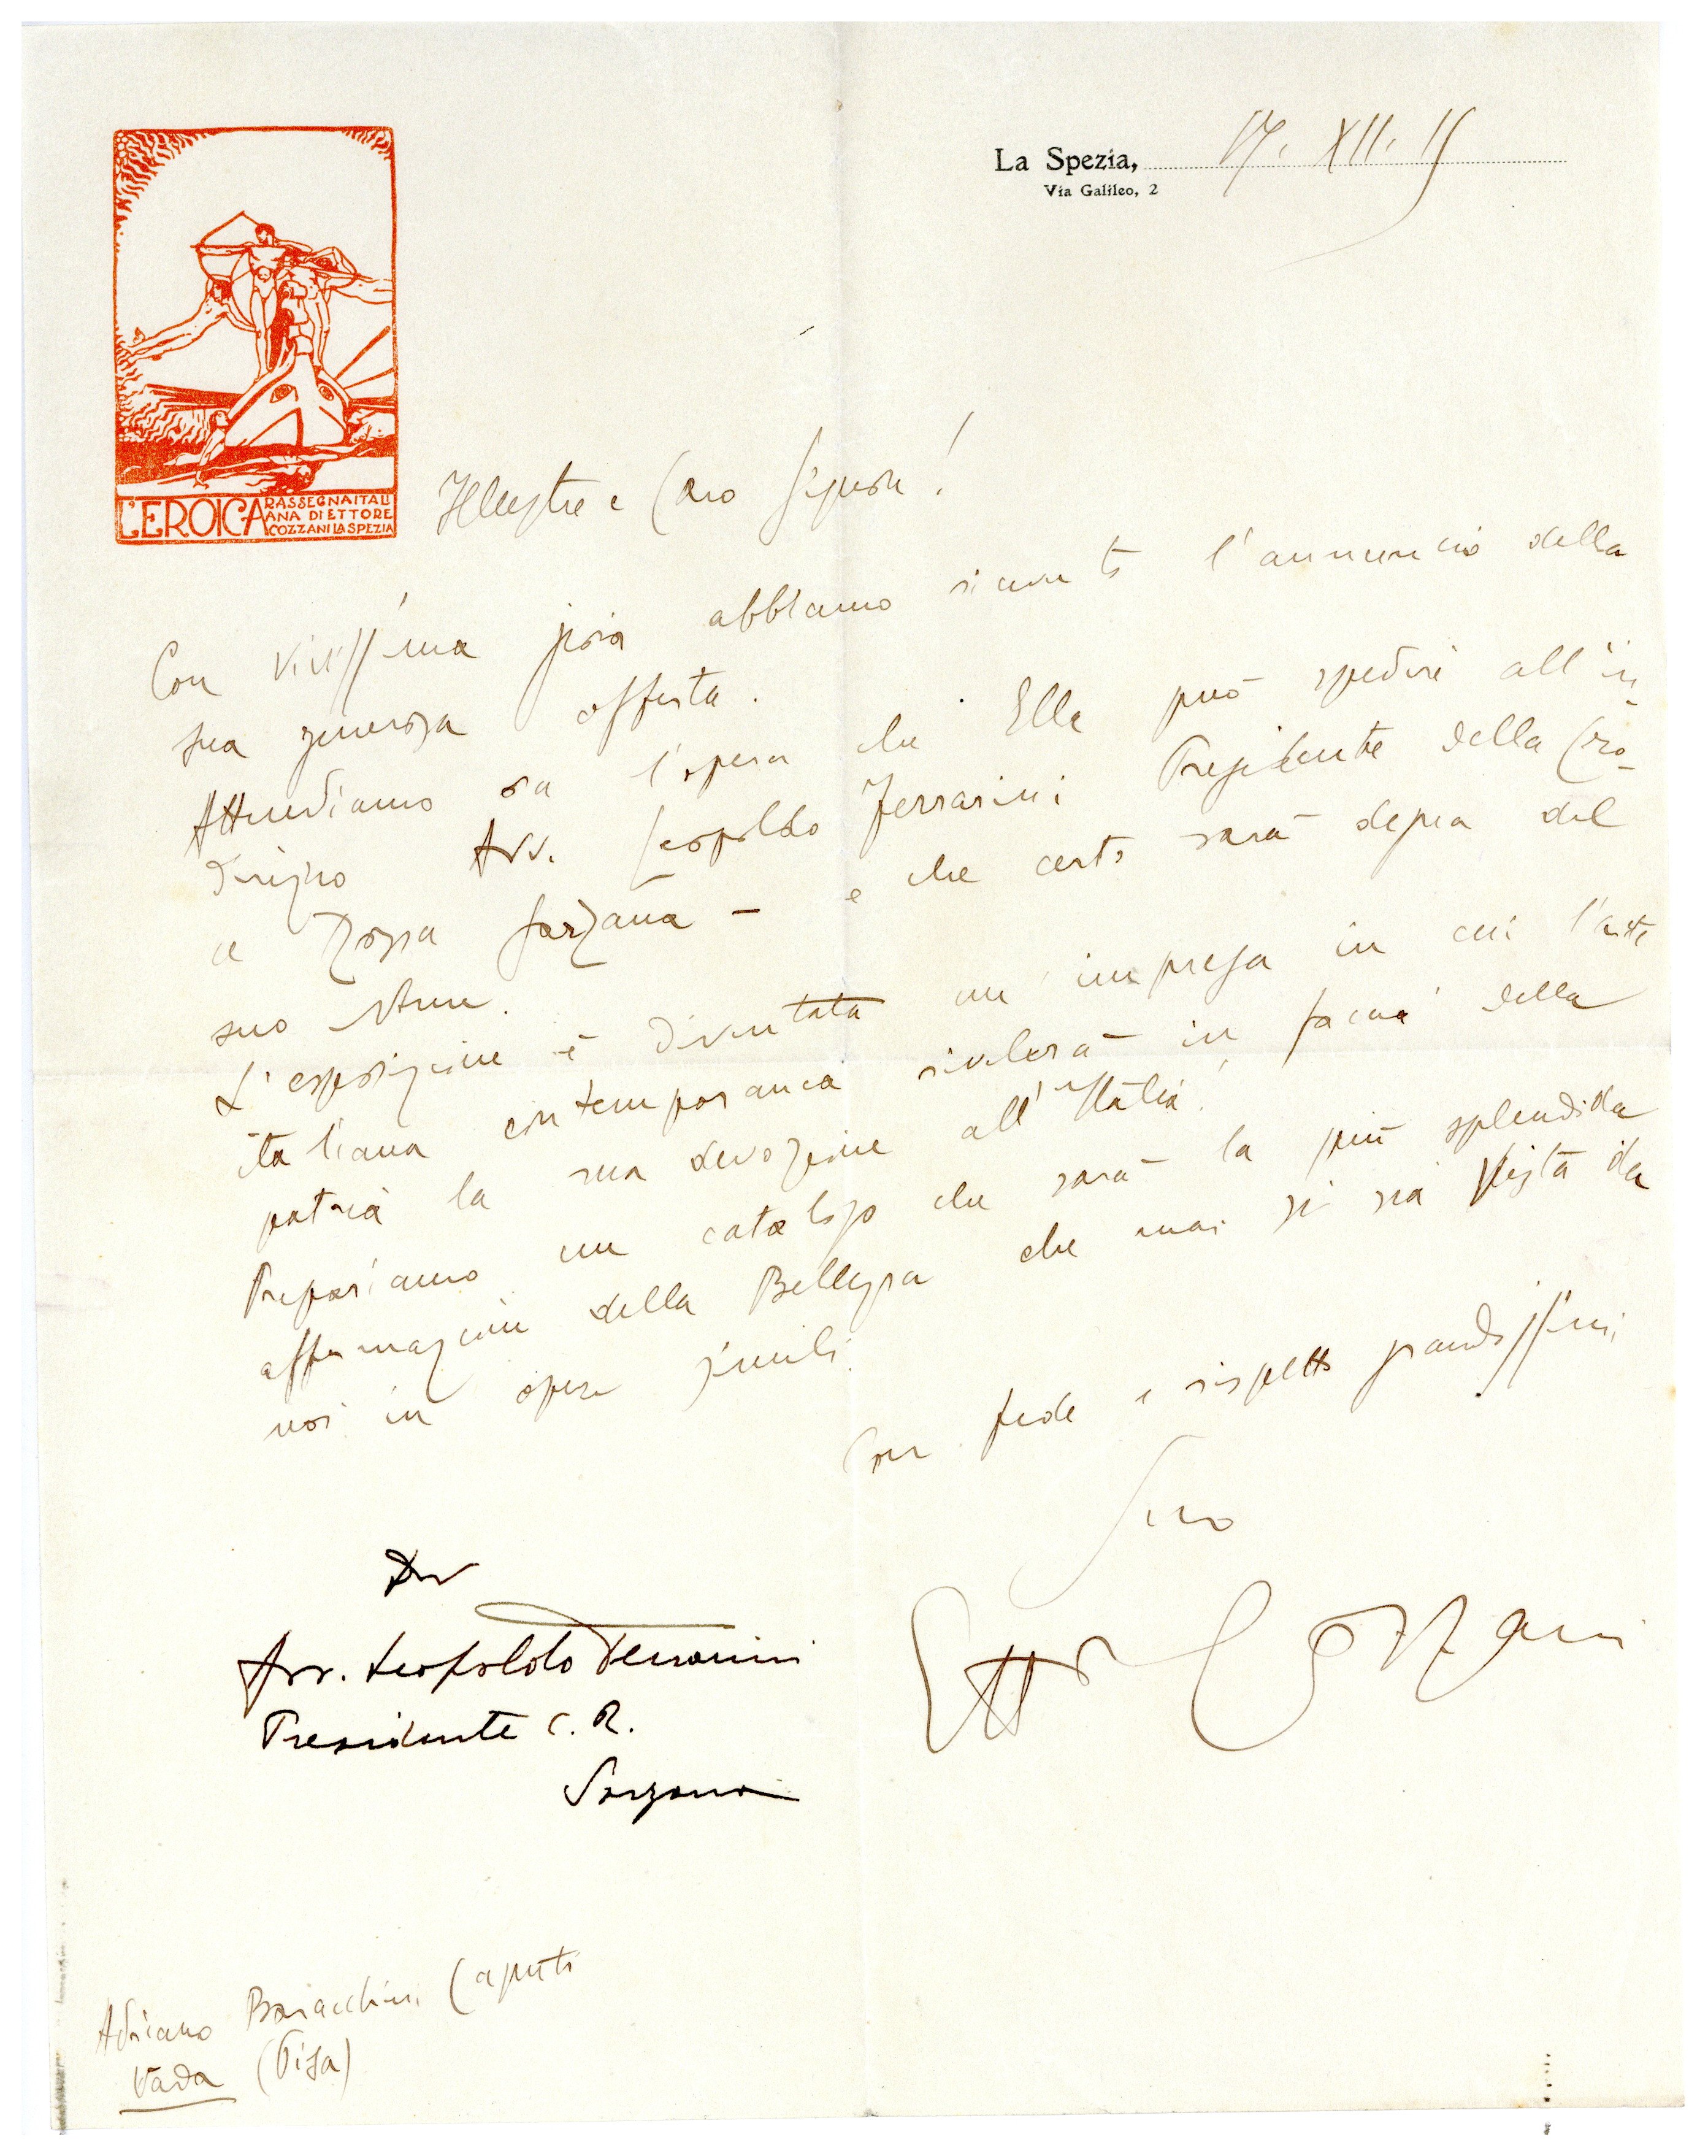 La Spezia, 17. XII. 15
Via Galileo, 2
L'EROICA RASSEGNA ITALI
ANA DI ETTORE
COZZANI LA SPEZIA
Illustre e Caro Signore!
Con vivissima gioia abbiamo ricevuto l'annuncio della
sua generosa offerta.
Attendiamo ora l'opera che Ella può spedire all'in-
dirizzo Avv. Leopoldo Ferrarini Presidente della Cro-
ce Rossa Sarzana - e che certo sarà degna del
suo nome.
L'esposizione è diventata un'impresa in cui l'arte
italiana contemporanea rivelerà in faccia della
patria la sua devozione all'Italia!
Prepariamo un catalogo che sarà la più splendida
affermazione della Bellezza che mai si sia vista da
noi in opere simili.
Con fede e rispetto grandissimi
Suo
Ettore Cozzani
Avv. Leopoldo Ferrarini
Presidente C. R.
Sarzana
Adriano Baracchini Caputi
Vada (Pisa)